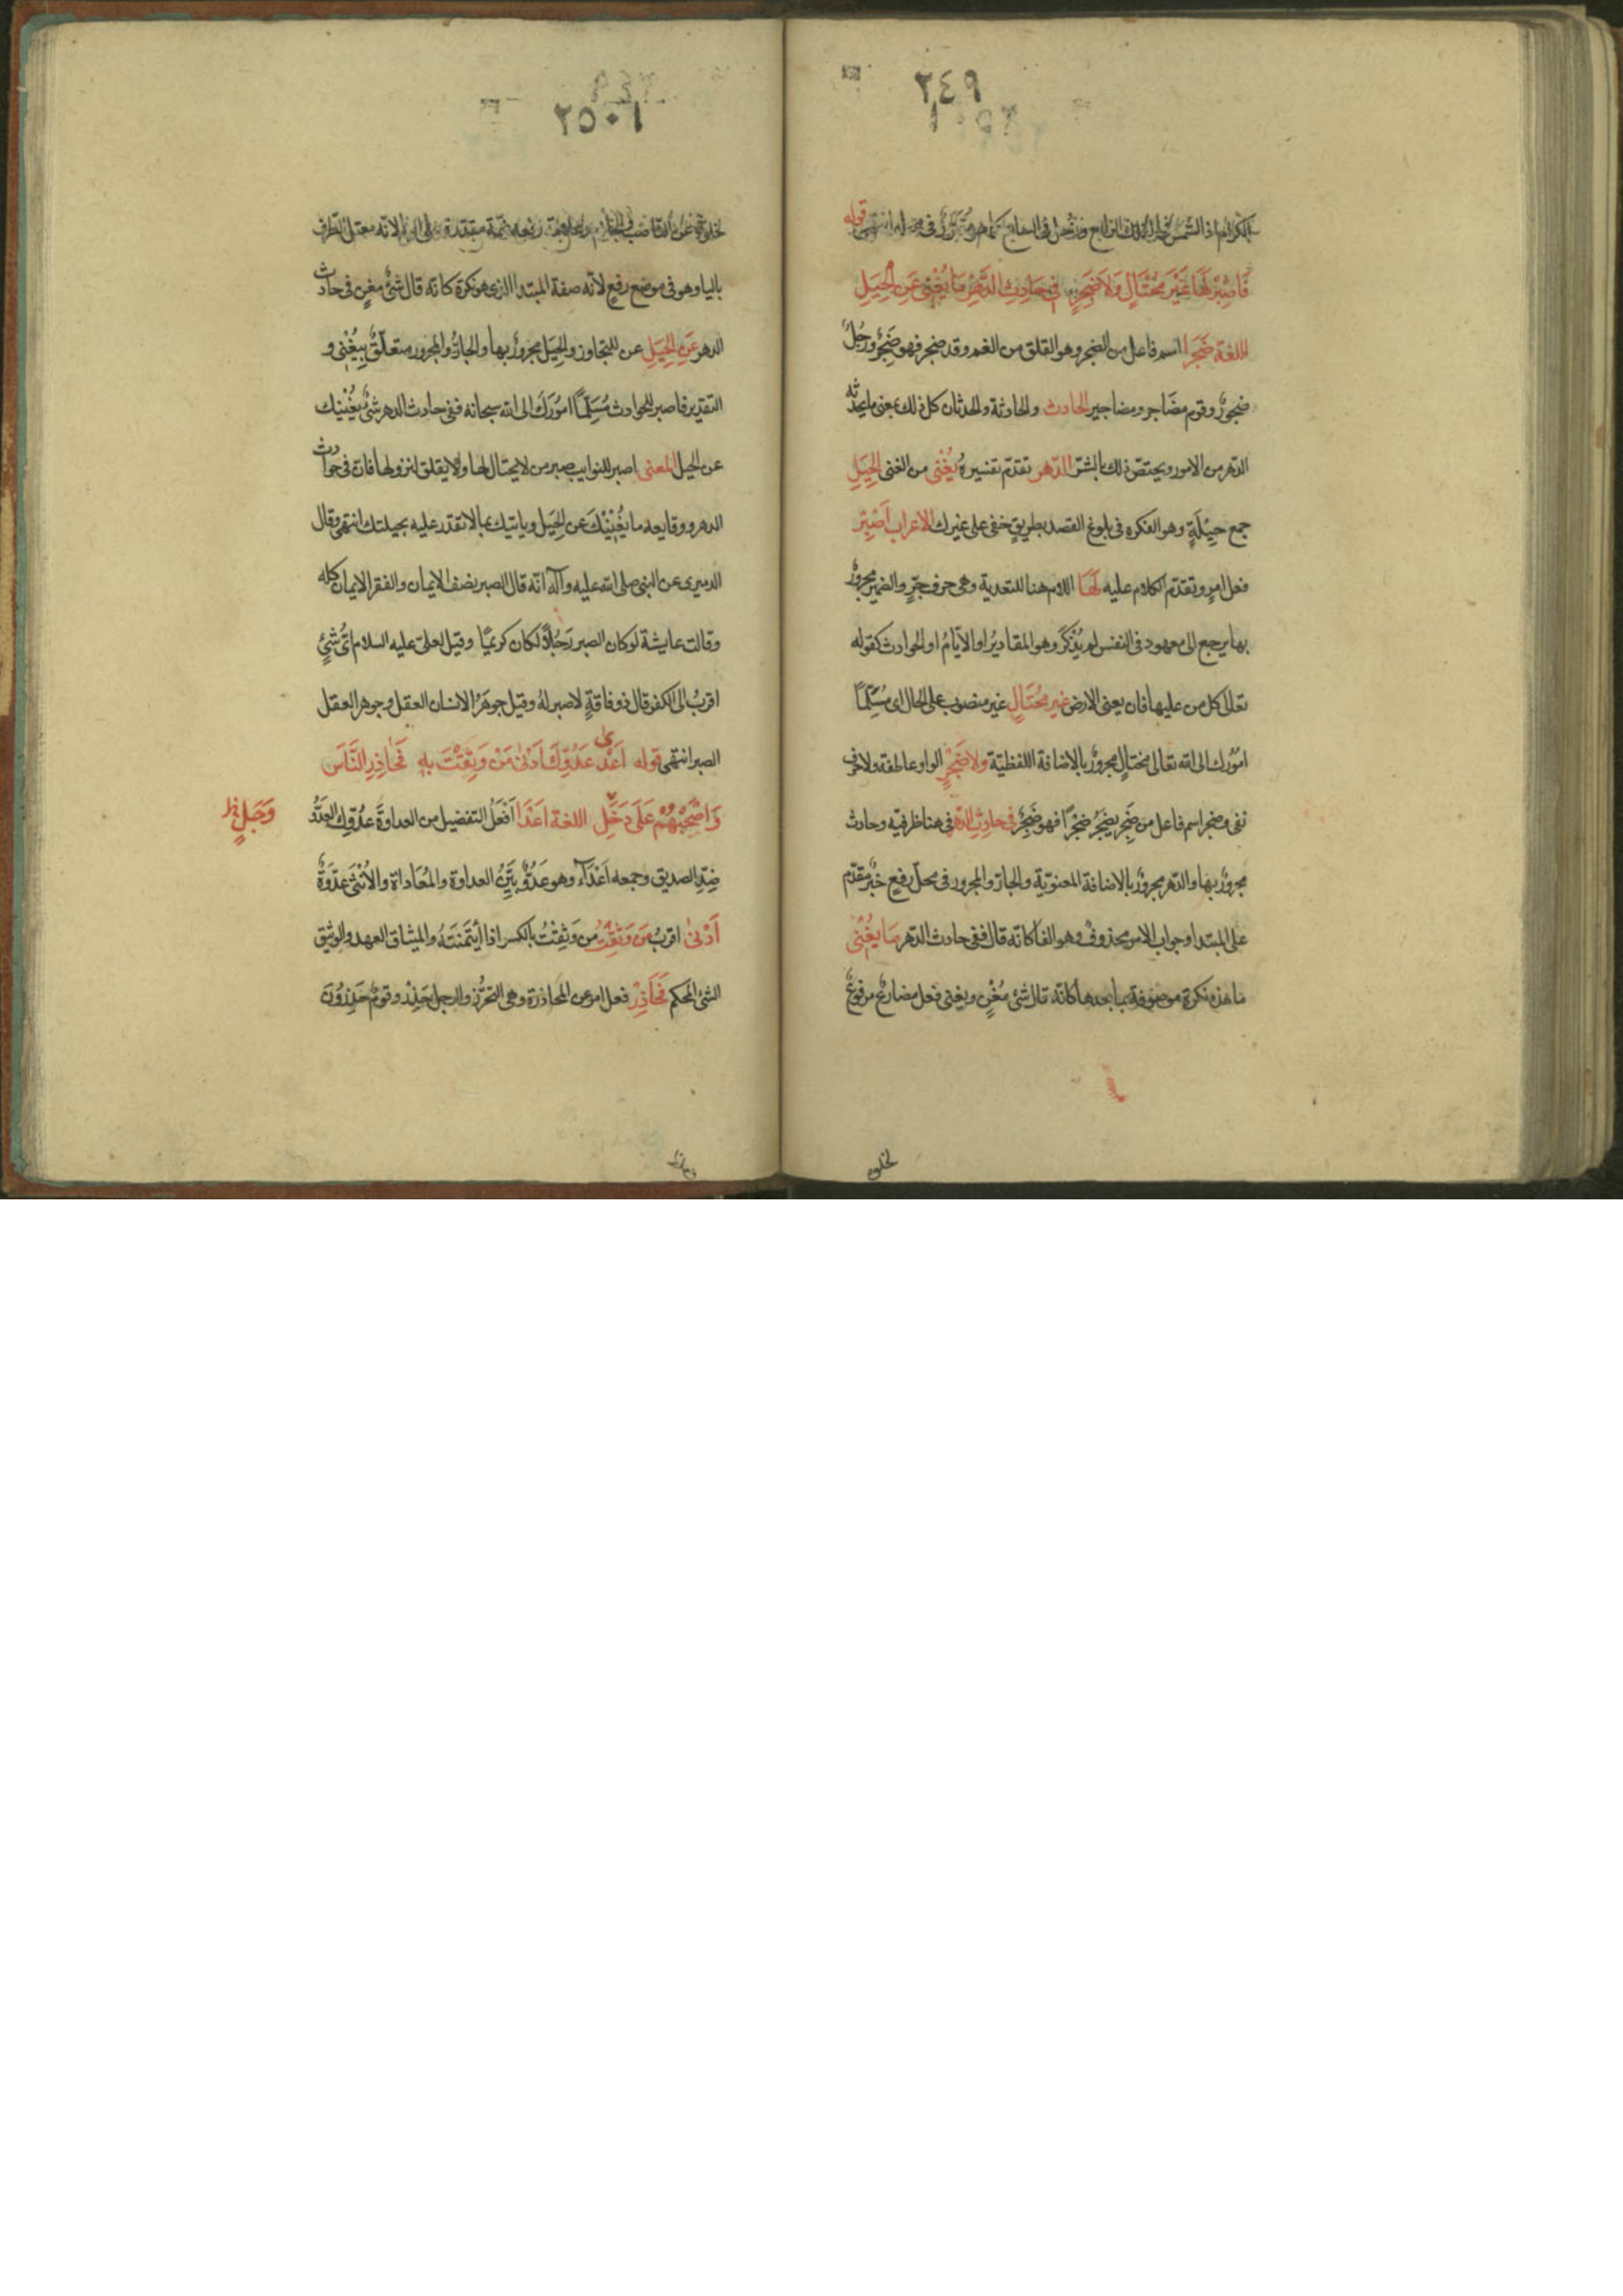 ٢٤٩
قوله
فَاصْبِرْ لَهَا غَيْرَ مُحْتَالٍ وَلَا ضَجِرٍ في حَادِثِ الدَّهْرِ مَا يُغْنِي عَنِ الْحِيَلِ
اللغة ضَجِرَا اسم فاعل من الضجر وهو القلق من الغم وقد ضجر فهو ضَجِرٌ ورَجُلٌ
ضجورٌ وقوم مضَاجر ومضاجير الحادث والحادثة والحدثان كل ذلك بمعنى ما يحدثه
الدّهر من الامور ويختصّ ذلك بالشرّ الدّهر تقدّم تفسيرهُ يُغْنى من الغنى الحِيَلِ
جمع حِيْلَةٍ وهو الفكره في بلوغ القصد بطريقٍ خفى على غيرك الاعراب اصْبِرْ
فعل امرٍ وتقدّم الكلام عليه لَهَا اللام هنا للتعدية وهى حرف جرٍّ والضمير مجرورٌ
بها يرجع الى معهود في النفس لم يُذْكَرْ وهو المقاديرُ او الأيّامُ او الحوادث كقوله
تعالى كل من عليها فان يعنى الارض غير مُحْتَالٍ غير منصوب على الحال اى مُسَلِّمًا
امُورك الى الله تعالى محتالٍ مجرورٌ بالاضافة اللفظيّة ولا ضَجِرٍ الواو عاطفة ولا حرف
نفى وضجر اسم فاعل من ضَجِرَ يضجَرُ ضجَرًا فهو ضَجِرٌ في حادِثِ الدّهر في هنا ظرفيّه وحادث
مجرورٌ بها والدّهر مجرورٌ بالاضافة المعنويّة والجارّ والمجرور في محلّ رفعٍ خبرٌ مقدّم
على المبتدا وجواب الامر محذوفٌ وهو الفا كانّه قال ففى حادث الدّهر مَا يُغْنى
ما هذه نكرة موصوفة بما بعدها كانّه قال شئٌ مُغْنٍ ويغنى فعل مضارعٌ مرفوعٌ
لخلوه
٢٥٠١
لخلوّه عن الناصب والجازم رفعه ضمّة مقدّرة على اليا لانّه معتل الطرف
باليا وهو في موضع رفعٍ لانّه صفة المبتدا الذى هو نكرة كانّه قال شئٌ مغنٍ في حادث
الدهر عَنِ الْحِيَلِ عن للتجاوز والحِيَل مجرورٌ بها والجارُّ والمجرور متعلّقٌ بِيُغْنى و
التقدير فاصبر للحوادث مُسَلِّمًا امُورَكَ الى الله سبحانه ففى حادث الدهر شئٌ يُغْنِيك
عن الحيل المعنى اصبر للنوايب صبر من لا يحتال لها ولا يقلق لنزولها فان في حوادث
الدهر ووقايعه ما يُغْنِيْكَ عن الحِيَل وياتيك بما لا تقدر عليه بحيلتك انتهى وقال
الدميرى عن النبى صلى الله عليه وآله انّه قال الصبر نصف الايمان والفقر الايمان كله
وقالت عايشة لو كان الصبر رَجُلًا لكان كريمًا وقيل لعلىّ عليه السلام اىُّ شئٍ
اقربُ الى الكفر قال ذو فاقةٍ لا صبر لهُ وقيل جوهَرُ الانسان العقل وجوهر العقل
الصبر انتهى قوله اَعْدَى عَدُوِّكَ اَدْنَى مَنْ وَثِقْتَ بِهِ فَحَاذِرِ النَّاسَ
وَاصْحَبْهُمْ عَلَى دَخَلِ اللغة اَعْدَا اَفْعَلُ التفضيل من العداوة عدُوّك العَدُوّ
وَجَلٍ
ضِدّ الصديق وجمعه اَعْدَآء وهو عَدُوٌّ بيِّنُ العداوة والمُعَاداة والاُنْثى عدُوَّةٌ
اَدْنى اقربُ مَن وَثِقْتَ من وَثِقْتُ بالكسر اذا ائْتَمَنْتَهُ والميثاق العهد والوثيق
الشئ المحكم فَحَاذِرْ فعل امر من المحاذرة وهى التحرُّز والرجل حَذِرٌ وقومٌ حَذِرُوْنَ